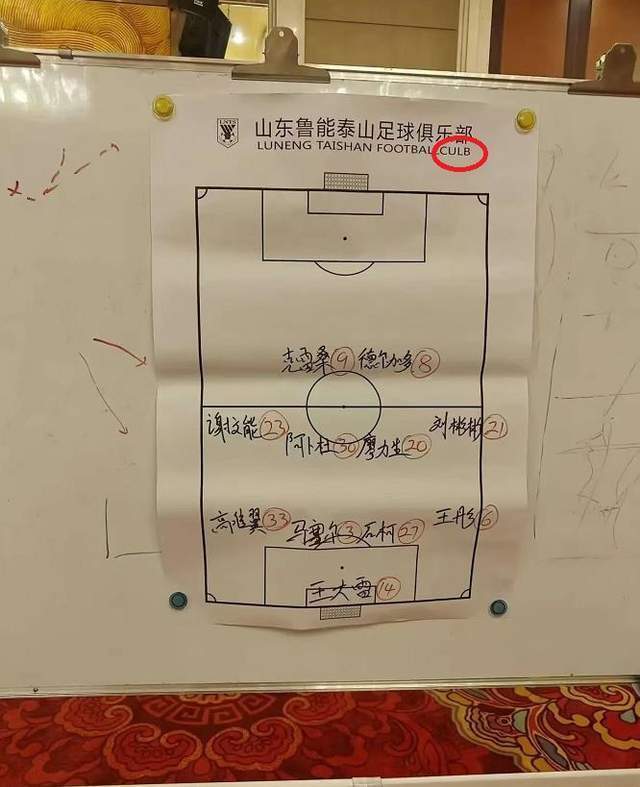 LNTS
山东鲁能泰山足球俱乐部
LUNENG TAISHAN FOOTBALL CULB
克雷桑 9 德尔加多 8
谢文能 23 阿卜杜 30 廖力生 20 刘彬彬 21
高准翼 33 马塞尔 3 石柯 27 王彤 6
王大雷 14